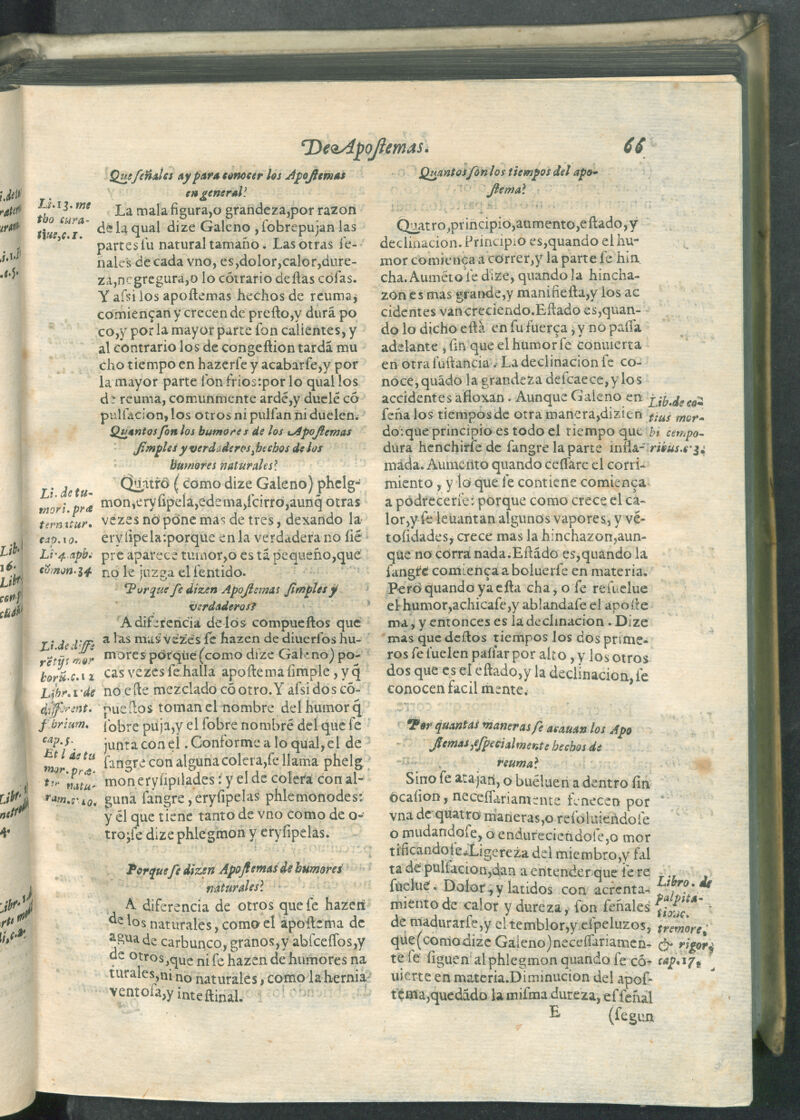 De Apoſtemas.
66
Que ſeñales ay para conocer los Apoſtemas
en general?
Li.13. me
tho cura-
tiue,c.1.
La mala figura,o grandeza,por razon
de la qual dize Galeno, ſobrepujan las
partes ſu natural tamaño. Las otras ſe-
ñales de cada vno, es,dolor,calor,dure-
za,negregura,o lo cõtrario deſtas coſas.
Y aſsi los apoſtemas hechos de reuma,
comiençan y crecen de preſto,y durã po
co,y por la mayor parte ſon calientes, y
al contrario los de congeſtion tardã mu
cho tiempo en hazerſe y acabarſe,y por
la mayor parte ſon frios:por lo qual los
de reuma, comunmente ardẽ,y duelẽ cõ
pulſacion, los otros ni pulſan ni duelen.
Quantos ſon los humores de los Apoſtemas
ſimples y verdaderos,hechos de los
humores naturales?
Li. de tu-
mori. præ
ter natur.
cap.10.
Li.4.aph.
cõmon.34
Quatro (como dize Galeno) phelg-
mon,eryſipela,edema,ſcirro,aunq̃ otras
vezes no pone mas de tres, dexando la
eryſipela:porque en la verdadera no ſiẽ
pre aparece tumor,o es tã pequeño,que
no le juzga el ſentido.
Porque ſe dizen Apoſtemas ſimples y
verdaderos?
Li.de diffe
rẽtijs mor
borũ.c.12
Libr.1.de
different.
febrium.
cap.5.
Et l de tu
mor.præ-
ter natu-
ram.c.10.
A diferencia de los compueſtos que
a las mas vezes ſe hazen de diuerſos hu-
mores porque (como dize Galeno) po-
cas vezes ſe halla apoſtema ſimple, y q̃
no eſte mezclado cõ otro.Y aſsi dos cõ-
pueſtos toman el nombre del humor q̃
ſobre puja,y el ſobre nombre del que ſe
junta con el. Conforme a lo qual,el de
ſangre con alguna colera,ſe llama phelg
mon eryſipilades: y el de colera con al-
guna ſangre, eryſipelas phlemonodes:
y él que tiene tanto de vno como de o-
tro,ſe dize phlegmon y eryſipelas.
Porque ſe dizen Apoſtemas de humores
naturales?
A diferencia de otros que ſe hazen
de los naturales, como el apoſtema de
agua de carbunco, granos,y abſceſſos,y
de otros,que ni ſe hazen de humores na
turales,ni no naturales, como la hernia
ventoſa,y inteſtinal.
Quantos ſon los tiempos del apo-
ſtema?
Quatro,principio,aumento,eſtado,y
declinacion. Principio es,quando el hu-
mor comiença a correr,y la parte ſe hin
cha. Aumẽto ſe dize, quando la hincha-
zon es mas grande,y manifieſta,y los ac
cidentes van creciendo.Eſtado es,quan-
do lo dicho eſtà en ſu fuerça, y no paſſa
adelante, ſin que el humor ſe conuierta
en otra ſuſtancia. La declinacion ſe co-
noce,quãdo la grandeza deſcaece,y los
accidentes afloxan. Aunque Galeno en
ſeña los tiempos de otra manera,dizien
do:que principio es todo el tiempo que
dura henchirſe de ſangre la parte infla-
mada. Aumento quando ceſſare el corri-
miento, y lo que ſe contiene comiença
a podrecerſe: porque como crece el ca-
lor,y ſe leuantan algunos vapores, y vẽ-
toſidades, crece mas la hinchazon,aun-
que no corra nada.Eſtãdo es,quando la
ſangre comiença a boluerſe en materia.
Pero quando ya eſta cha, o ſe reſuelue
el humor,achicaſe,y ablandaſe el apoſte
ma, y entonces es la declinacion. Dize
mas que deſtos tiempos los dos prime-
ros ſe ſuelen paſſar por alto, y los otros
dos que es el eſtado,y la declinacion,ſe
conocen facilmente.
Lib.de to-
tius mor-
bi tempo-
ribus.c.3.
Por quantas maneras ſe acauan los Apo
ſtemas,eſpecialmente hechos de
reuma?
Si no ſe atajan, o buéluen a dentro ſin
ocaſion, neceſſariamente fenecen por
vna de quatro maneras,o reſoluiendoſe
o mudandoſe, o endureciendoſe,o mor
tificandoſe.Ligereza del miembro,y fal
ta de pulſacion,dan a entender que ſe re
ſuelue. Dolor, y latidos con acrenta-
miento de calor y dureza, ſon ſeñales
de madurarſe,y el temblor,y eſpeluzos,
que(como dize Galeno)neceſſariamen-
te ſe ſiguen al phlegmon quando ſe cõ-
uierte en materia.Diminucion del apoſ-
tema,quedãdo la miſma dureza, eſ ſeñal
Libro. de
palpita-
tione.
tremore,
& rigor,
cap.17.
E
(ſegun